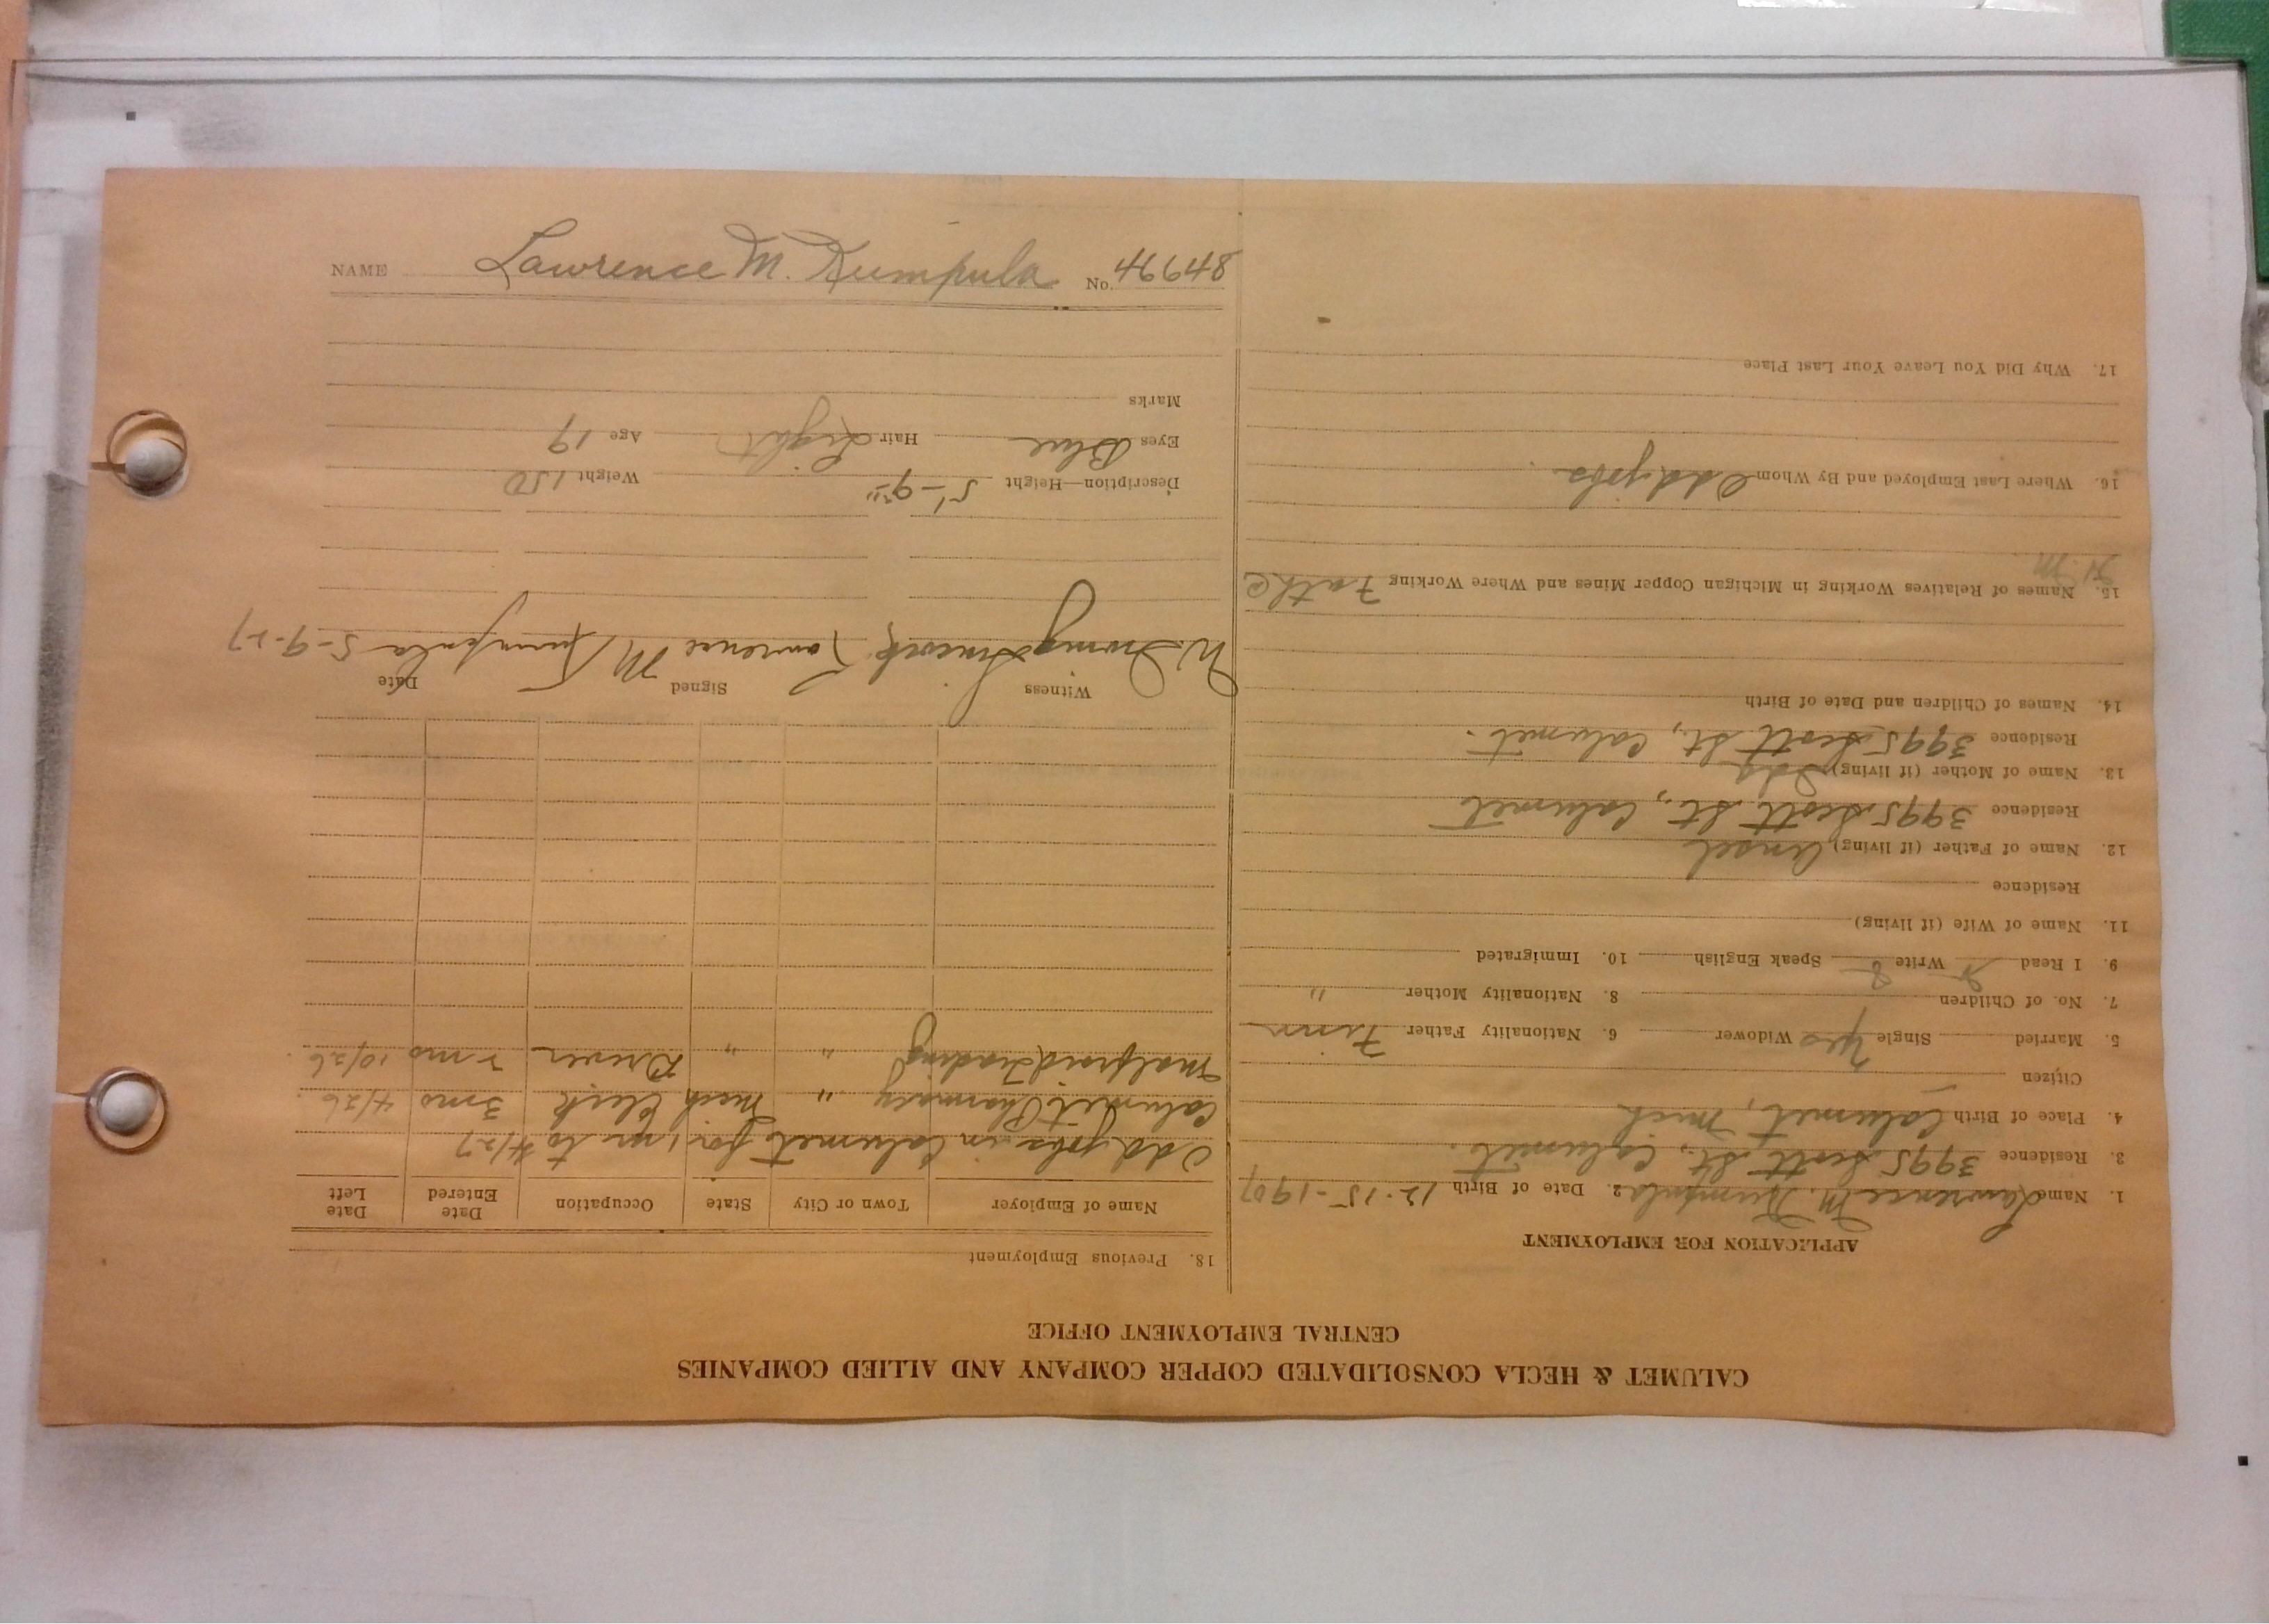 CALUMET & HECLA CONSOLIDATED COPPER COMPANY AND ALLIED COMPANIES
CENTRAL EMPLOYMENT OFFICE
APPLICATION FOR EMPLOYMENT
1. Name Lawrence M. Kumpula 2. Date of Birth 12-15-1907
3. Residence 3995 Scott St., Calumet.
4. Place of Birth Calumet, Mich
Citizen
5. Married Single Yes Widower 6. Nationality Father Finn
7. No. of Children 8. Nationality Mother "
9. I Read Write Speak English 10. Immigrated
11. Name of Wife (if living)
Residence
12. Name of Father (if living) Ansel
Residence 3995 Scott St., Calumet
13. Name of Mother (if living) Ida
Residence 3995 Scott St., Calumet.
14. Names of Children and Date of Birth
15. Names of Relatives Working in Michigan Copper Mines and Where Working Father
16. Where Last Employed and By Whom Odd jobs.
17. Why Did You Leave Your Last Place
18. Previous Employment
Name of Employer Town or City State Occupation Date Entered Date Left
Odd jobs in Calumet for 1 yr to 4/27
Calumet Pharmacy " Mich Clerk 3 mo 4/26.
Trading " " Driver 2 mo 10/26.
Witness Signed Date
Lawrence M Kumpula 5-9-27
Description—Height 5'-9" Weight 150
Eyes Blue Hair Light Age 19
Marks
NAME Lawrence M. Kumpula No. 46648